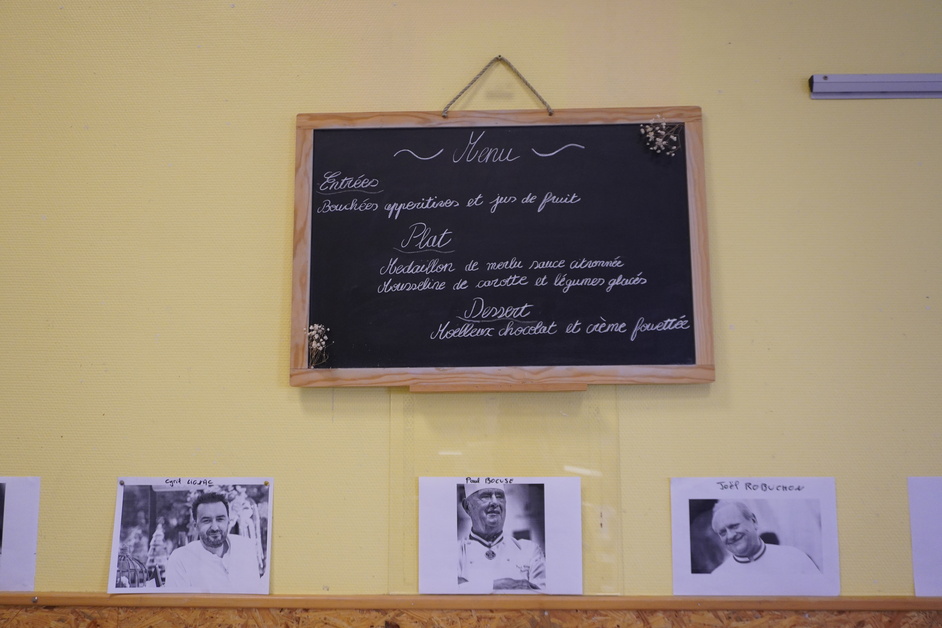 Menu
Entrées
Bouchées apperitives et jus de fruit
Plat
Medaillon de merlu sauce citronnée
Mousseline de carotte et légumes glacés
Dessert
Moelleux chocolat et crème fouettée
Cyril LIGNAC
Paul BOCUSE
Joël ROBUCHON